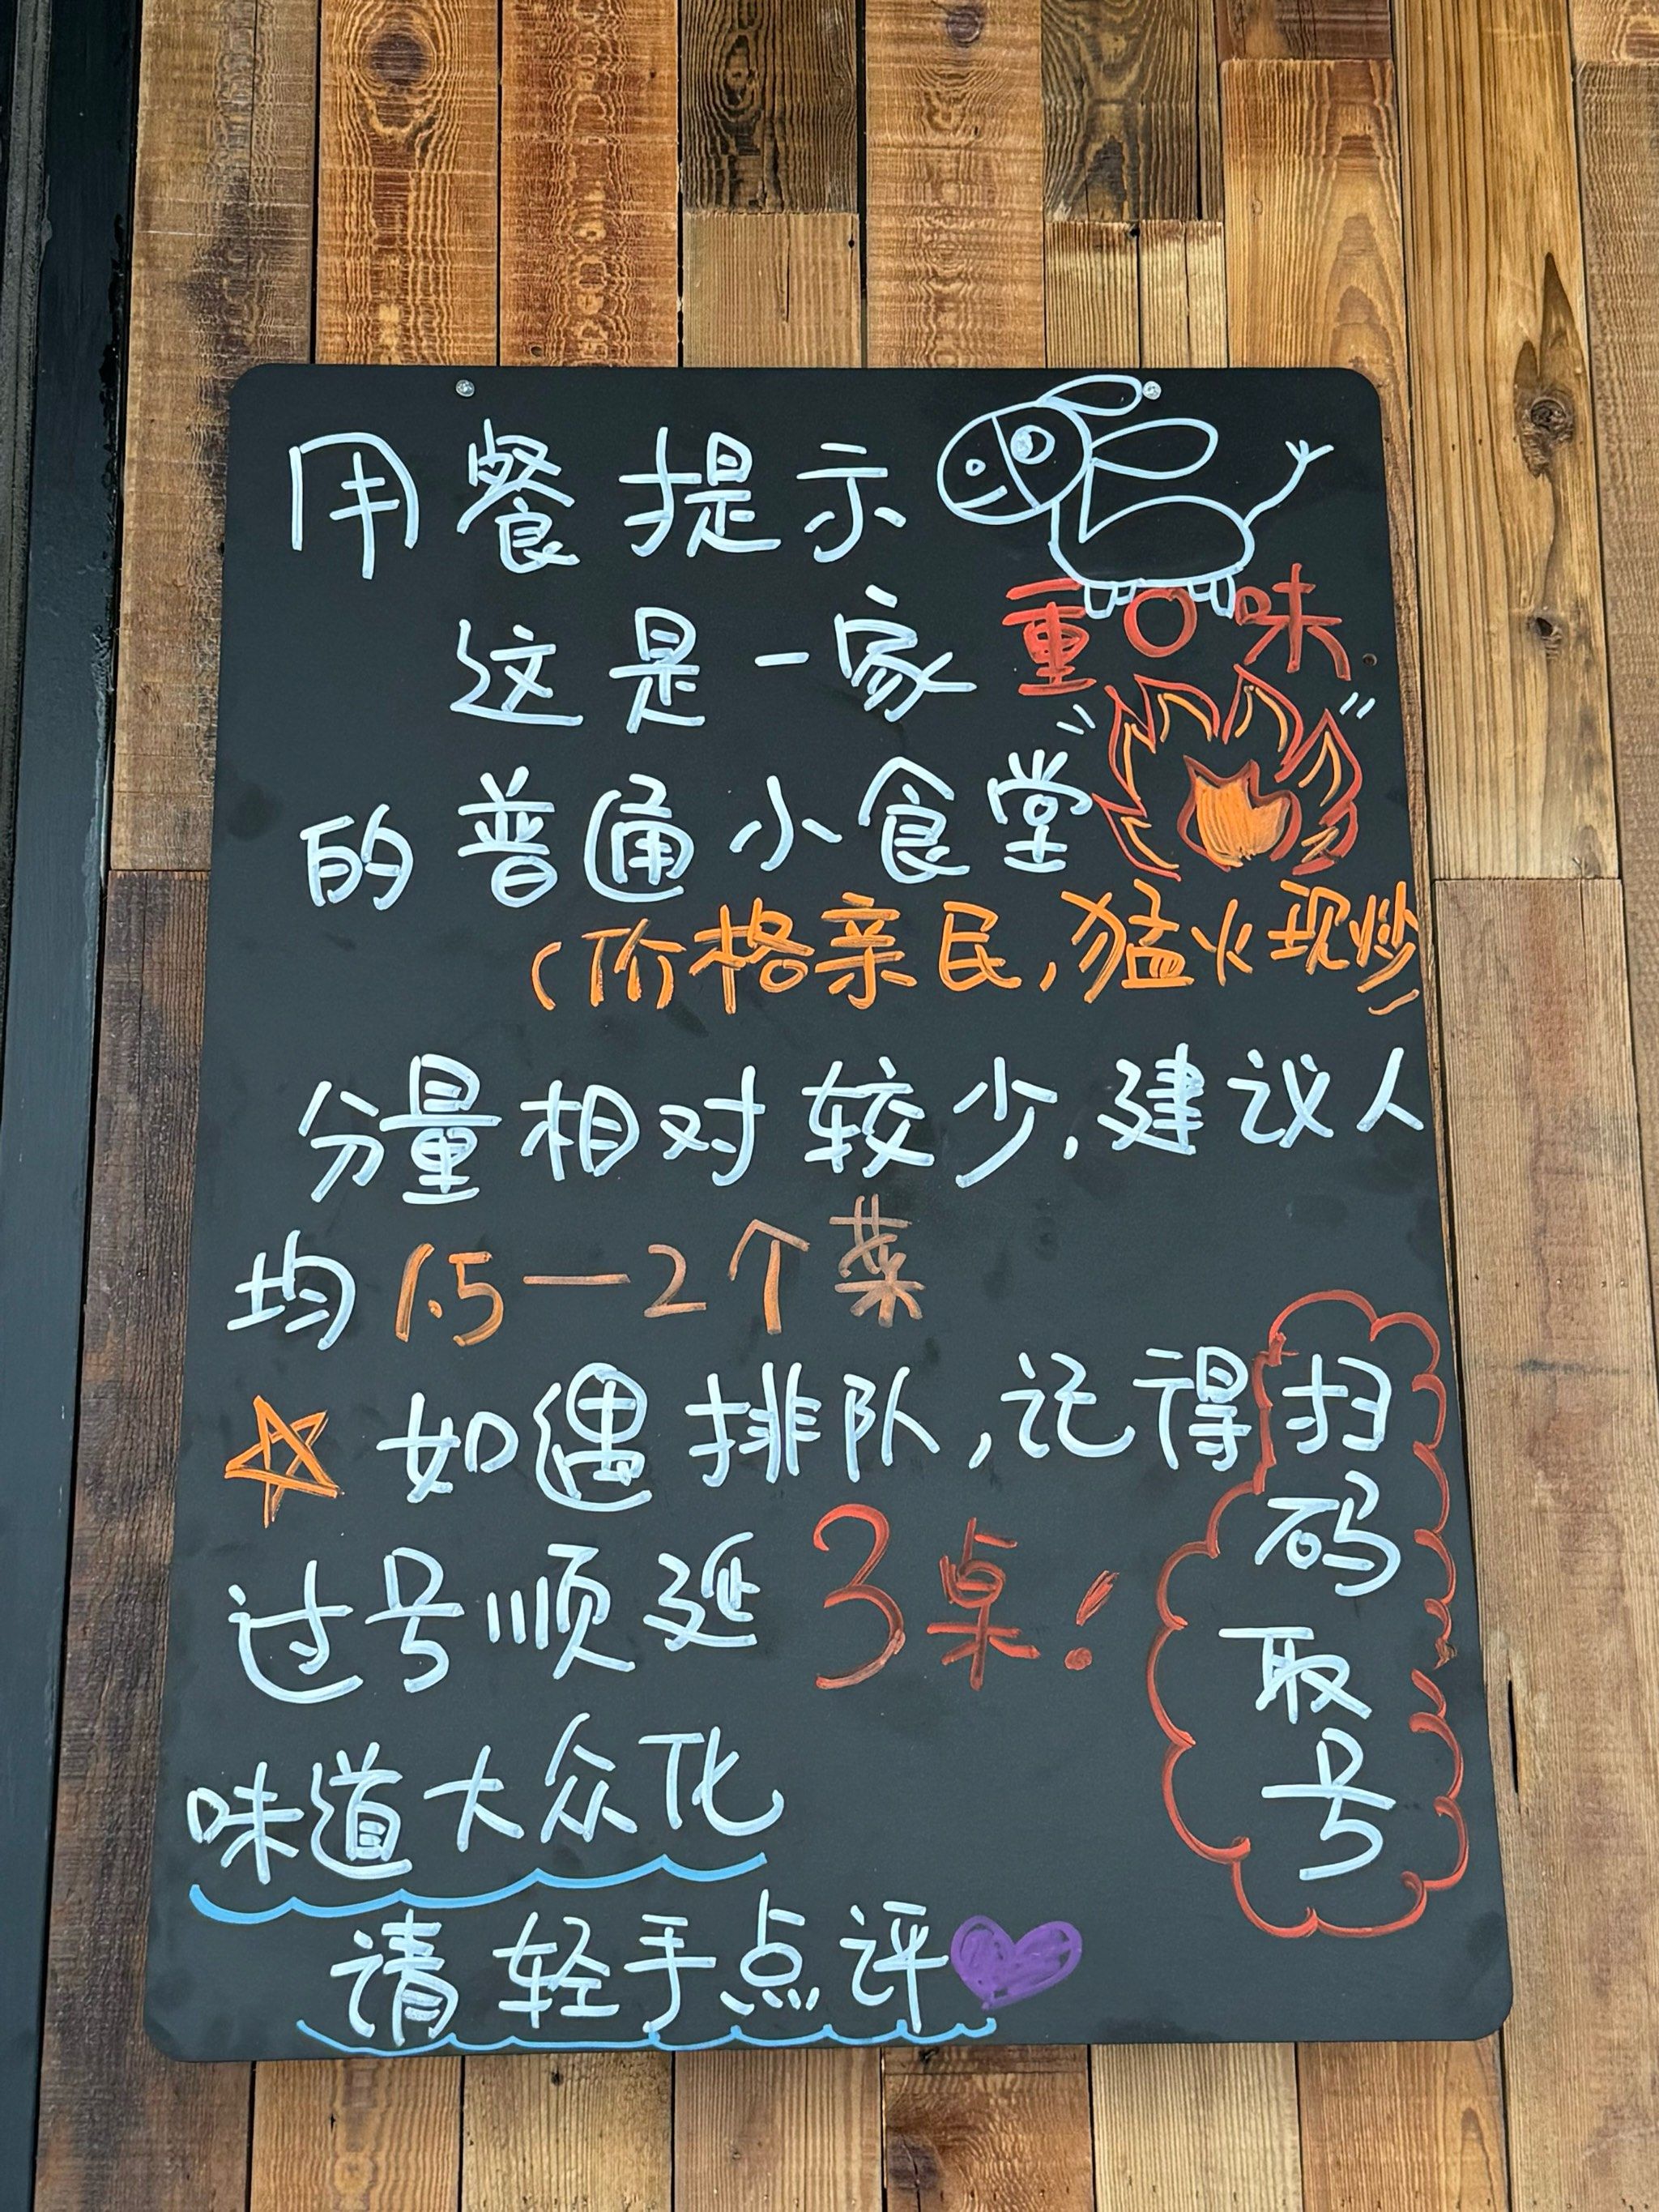 用餐提示
这是一家重口味
的普通小食堂
(价格亲民,猛火现炒
分量相对较少,建议人
均1.5—2个菜
如遇排队,记得扫码取号
过号顺延3桌!
味道大众化
请轻手点评